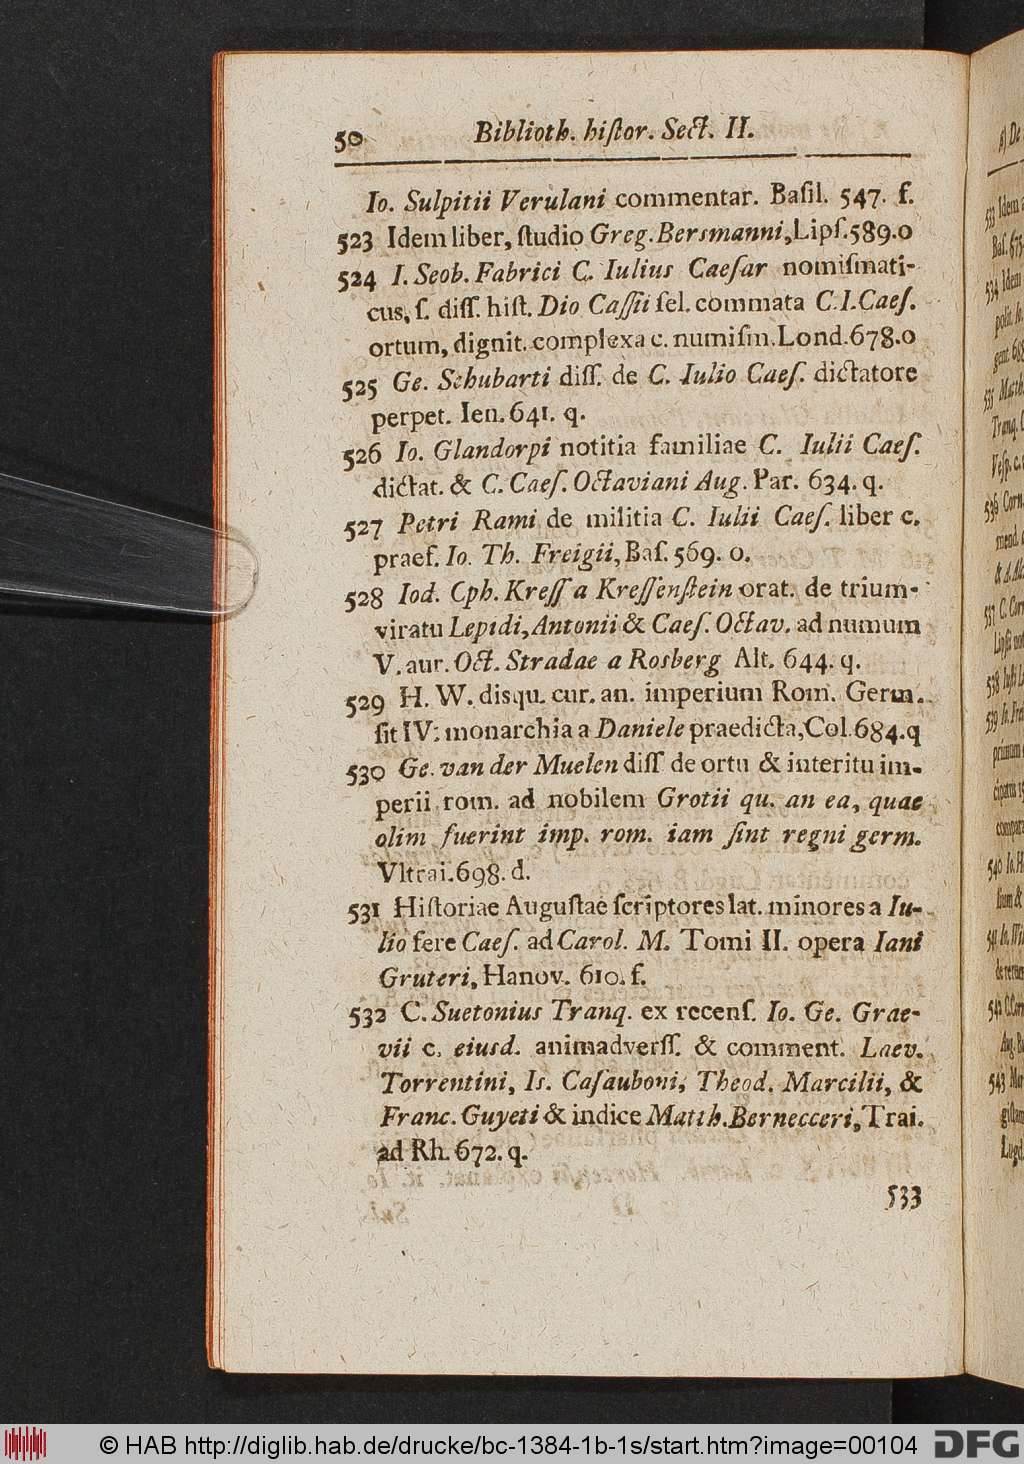 50 Biblioth. hiſtor. Sect. II.
Io. Sulpitii Verulani commentar. Baſil. 547. f.
523 Idem liber, ſtudio Greg. Bersmanni, Lipſ. 589. o
524 I. Seob. Fabrici C. Iulius Caeſar nomiſmati-
cus, ſ. diſſ. hiſt. Dio Caſſii ſel. commata C. I. Caeſ.
ortum, dignit. complexa c. numiſm. Lond. 678. o
525 Ge. Schubarti diſſ. de C. Iulio Caeſ. dictatore
perpet. Ien. 641. q.
526 Io. Glandorpi notitia familiae C. Iulii Caeſ.
dictat. & C. Caeſ. Octaviani Aug. Par. 634. q.
527 Petri Rami de militia C. Iulii Caeſ. liber c.
praef. Io. Th. Freigii, Baſ. 569. o.
528 Iod. Cph. Kreſſ a Kreſſenſtein orat. de trium-
viratu Lepidi, Antonii & Caeſ. Octav. ad numum
V. aur. Oct. Stradae a Rosberg Alt. 644. q.
529 H. W. disqu. cur. an. imperium Rom. Germ.
ſit IV. monarchia a Daniele praedicta, Col. 684. q
530 Ge. van der Muelen diſſ de ortu & interitu im-
perii rom. ad nobilem Grotii qu. an ea, quae
olim fuerint imp. rom. iam ſint regni germ.
Vltrai. 698. d.
531 Hiſtoriae Auguſtae ſcriptores lat. minores a Iu-
lio fere Caeſ. ad Carol. M. Tomi II. opera Iani
Gruteri, Hanov. 610. f.
532 C. Suetonius Tranq. ex recenſ. Io. Ge. Grae-
vii c. eiusd. animadverſſ. & comment. Laev.
Torrentini, Is. Caſauboni, Theod. Marcilii, &
Franc. Guyeti & indice Matth. Bernecceri, Trai.
ad Rh. 672. q.
533
© HAB http://diglib.hab.de/drucke/bc-1384-1b-1s/start.htm?image=00104
DFG